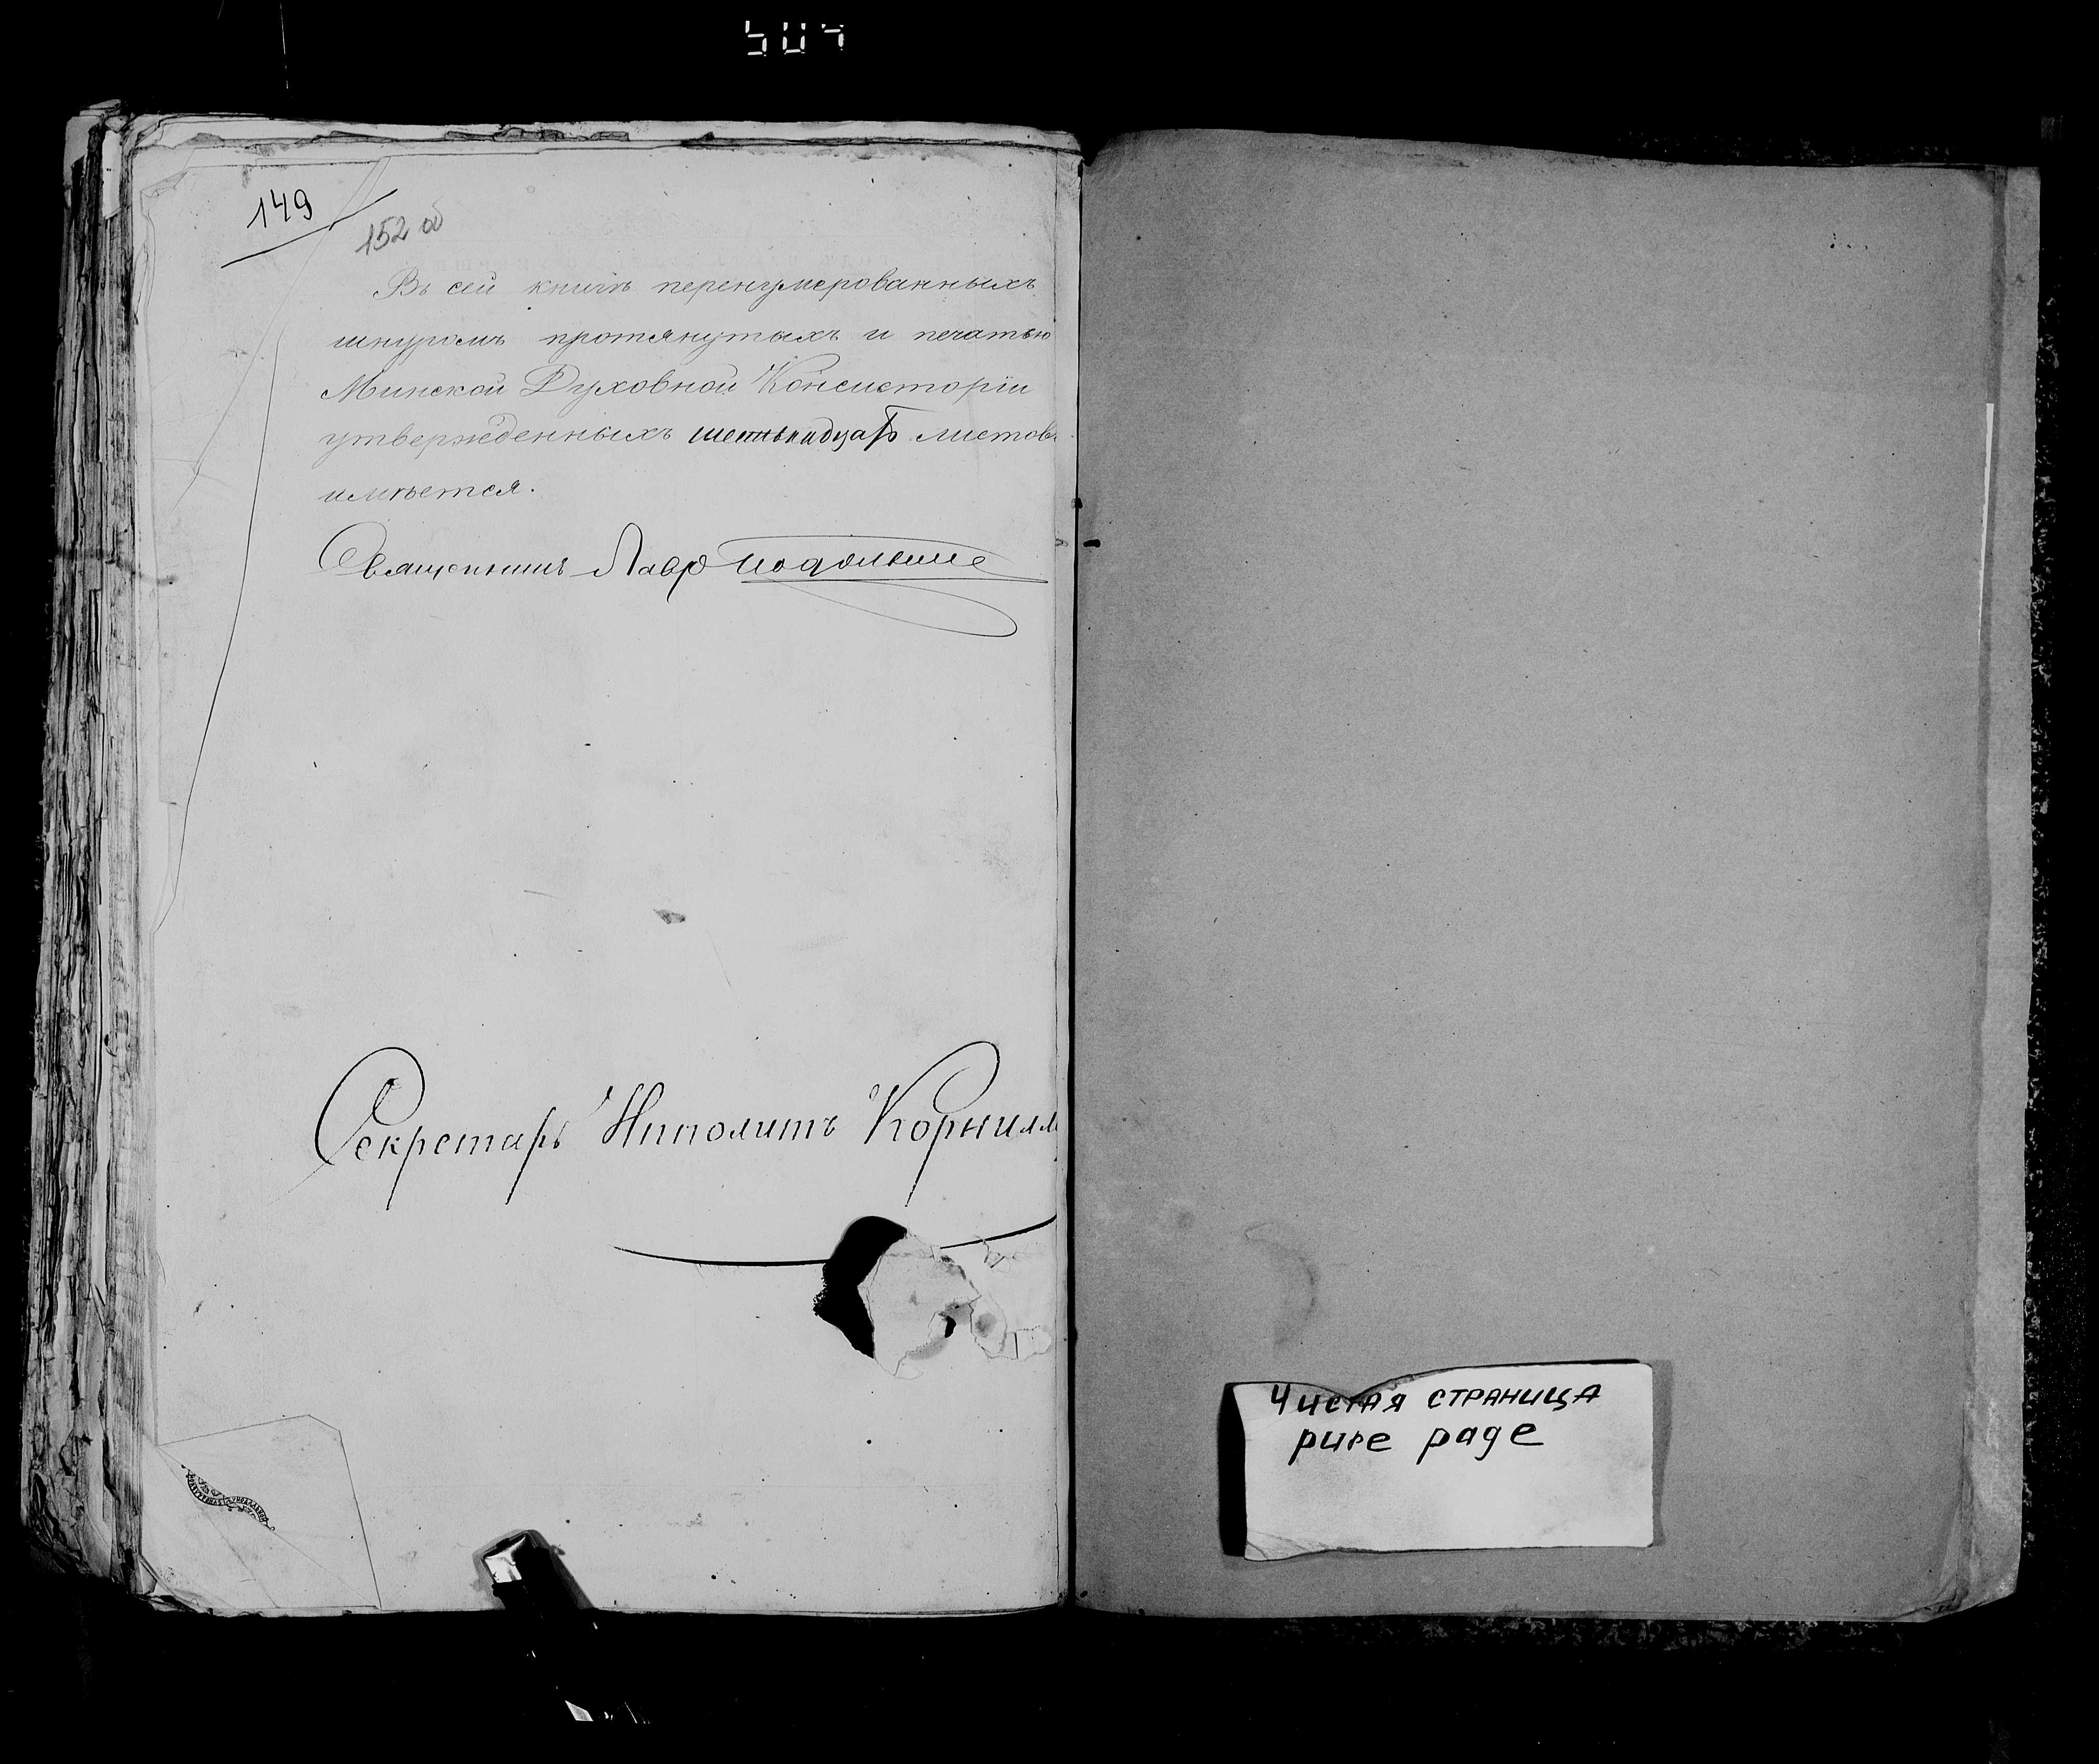 149
152 об
Въ сей книгѣ перенумерованныхъ
шнуромъ протянутыхъ и печатью
Минской Духовной Консисторіи
утвержденныхъ листовъ
имѣется.
Священникъ Лавр
Секретарь Ипполитъ Корнил
Чистая страница
pure page